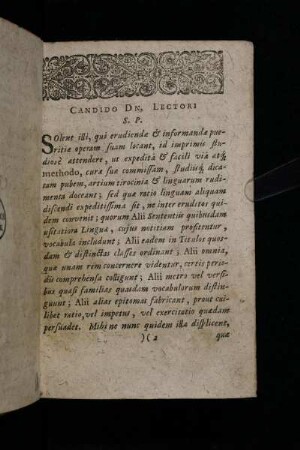 CANDIDO DN. LECTORI
S. P.
SOlent illi, qui erudiendæ & informandæ pue-
ritiæ operam suam locant, id imprimis stu-
diosè attendere, ut expeditâ & facili viâ atq;
methodo, curæ suæ commissam, studiisq; dica-
tam pubem, artium tirocinia & linguarum rudi-
menta doceant; sed quæ ratio linguam aliquam
discendi expeditissima sit, ne inter eruditos qui-
dem convenit: quorum Alii Sententiis quibusdam
usitatiora Linguæ, cujus notitiam profitentur,
vocabula includunt; Alii eadem in Titulos quos-
dam & distinctas classes ordinant; Alii omnia,
quæ unam rem concernere videntur, certis perio-
dis comprehensa colligunt; Alii metro vel versi-
bus quasi familias quasdam vocabularum distin-
guunt; Alii alias epitomas fabricant, prout cui-
libet ratio, vel impetus, vel exercitatio quædam
persuadet. Mihi ne nunc quidem illa displicent,
)( 2 quæ